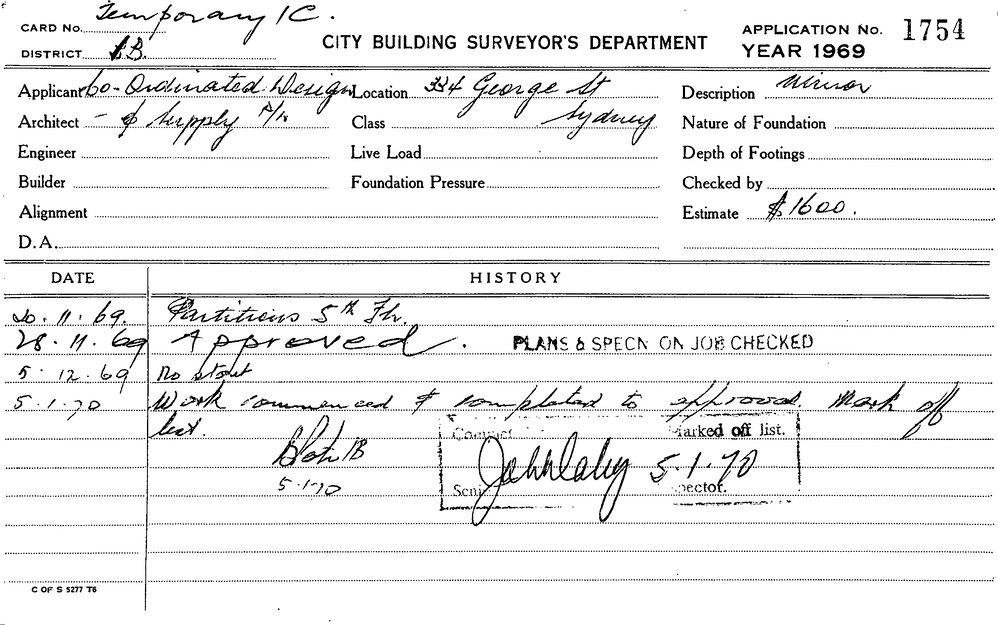 CARD No. Temporary 1C.
DISTRICT
CITY BUILDING SURVEYOR'S DEPARTMENT
APPLICATION No. 1754
YEAR 1969
Applicant Co-Ordinated Design Location 334 George St Description Minor
Architect - & Supply P/L Class Sydney Nature of Foundation
Engineer Live Load Depth of Footings
Builder Foundation Pressure Checked by
Alignment Estimate $1600.
D.A.
DATE HISTORY
20.11.69. Partitions 5th Flr.
28.11.69 Approved. PLANS & SPECN ON JOB CHECKED
5.12.69 No start
5.1.70 Work commenced & completed to approval Mark off
list.
Marked off list.
5.1.70
5.1.70
C OF S 5277 T6